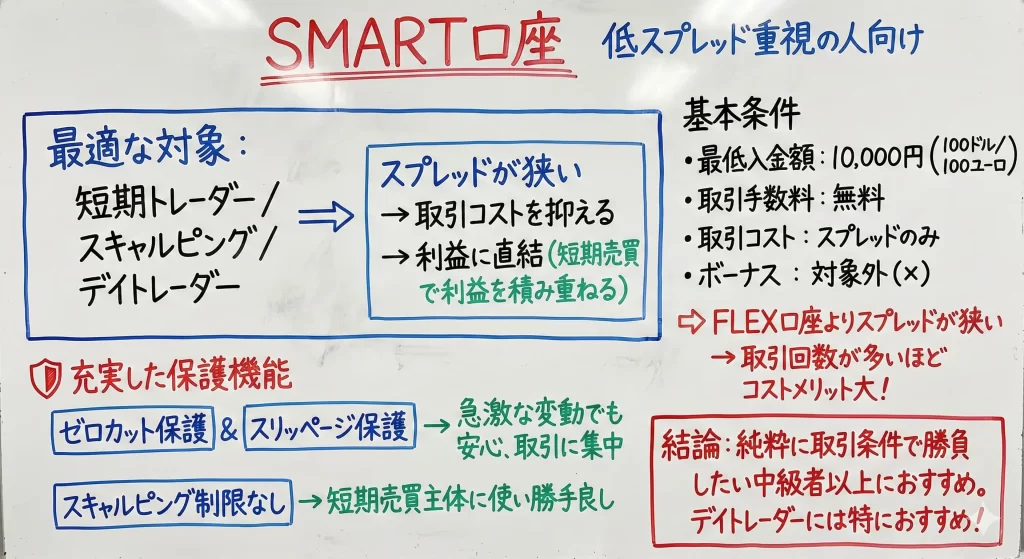 SMART口座 低スプレッド重視の人向け
最適な対象：
短期トレーダー/
スキャルピング/
デイトレーダー
スプレッドが狭い
→取引コストを抑える
→利益に直結(短期売買
で利益を積み重ねる)
基本条件
・最低入金額：10,000円(100ドル/
100ユーロ)
・取引手数料：無料
・取引コスト：スプレッドのみ
・ボーナス：対象外(×)
⇨FLEX口座よりスプレッドが狭い
→取引回数が多いほど
コストメリット大！
充実した保護機能
ゼロカット保護 & スリッページ保護 →急激な変動でも
安心、取引に集中
スキャルピング制限なし →短期売買主体に使い勝手良し
結論：純粋に取引条件で勝負
したい中級者以上におすすめ。
デイトレーダーには特におすすめ！